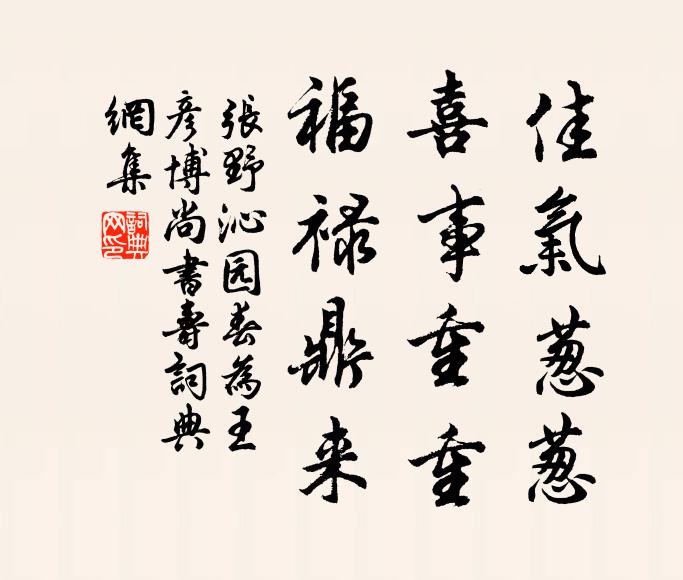 佳氣葱葱
喜事重重
福禄鼎来
張野沁园春為王
彦博尚書壽詞典
網集
詞典
网印